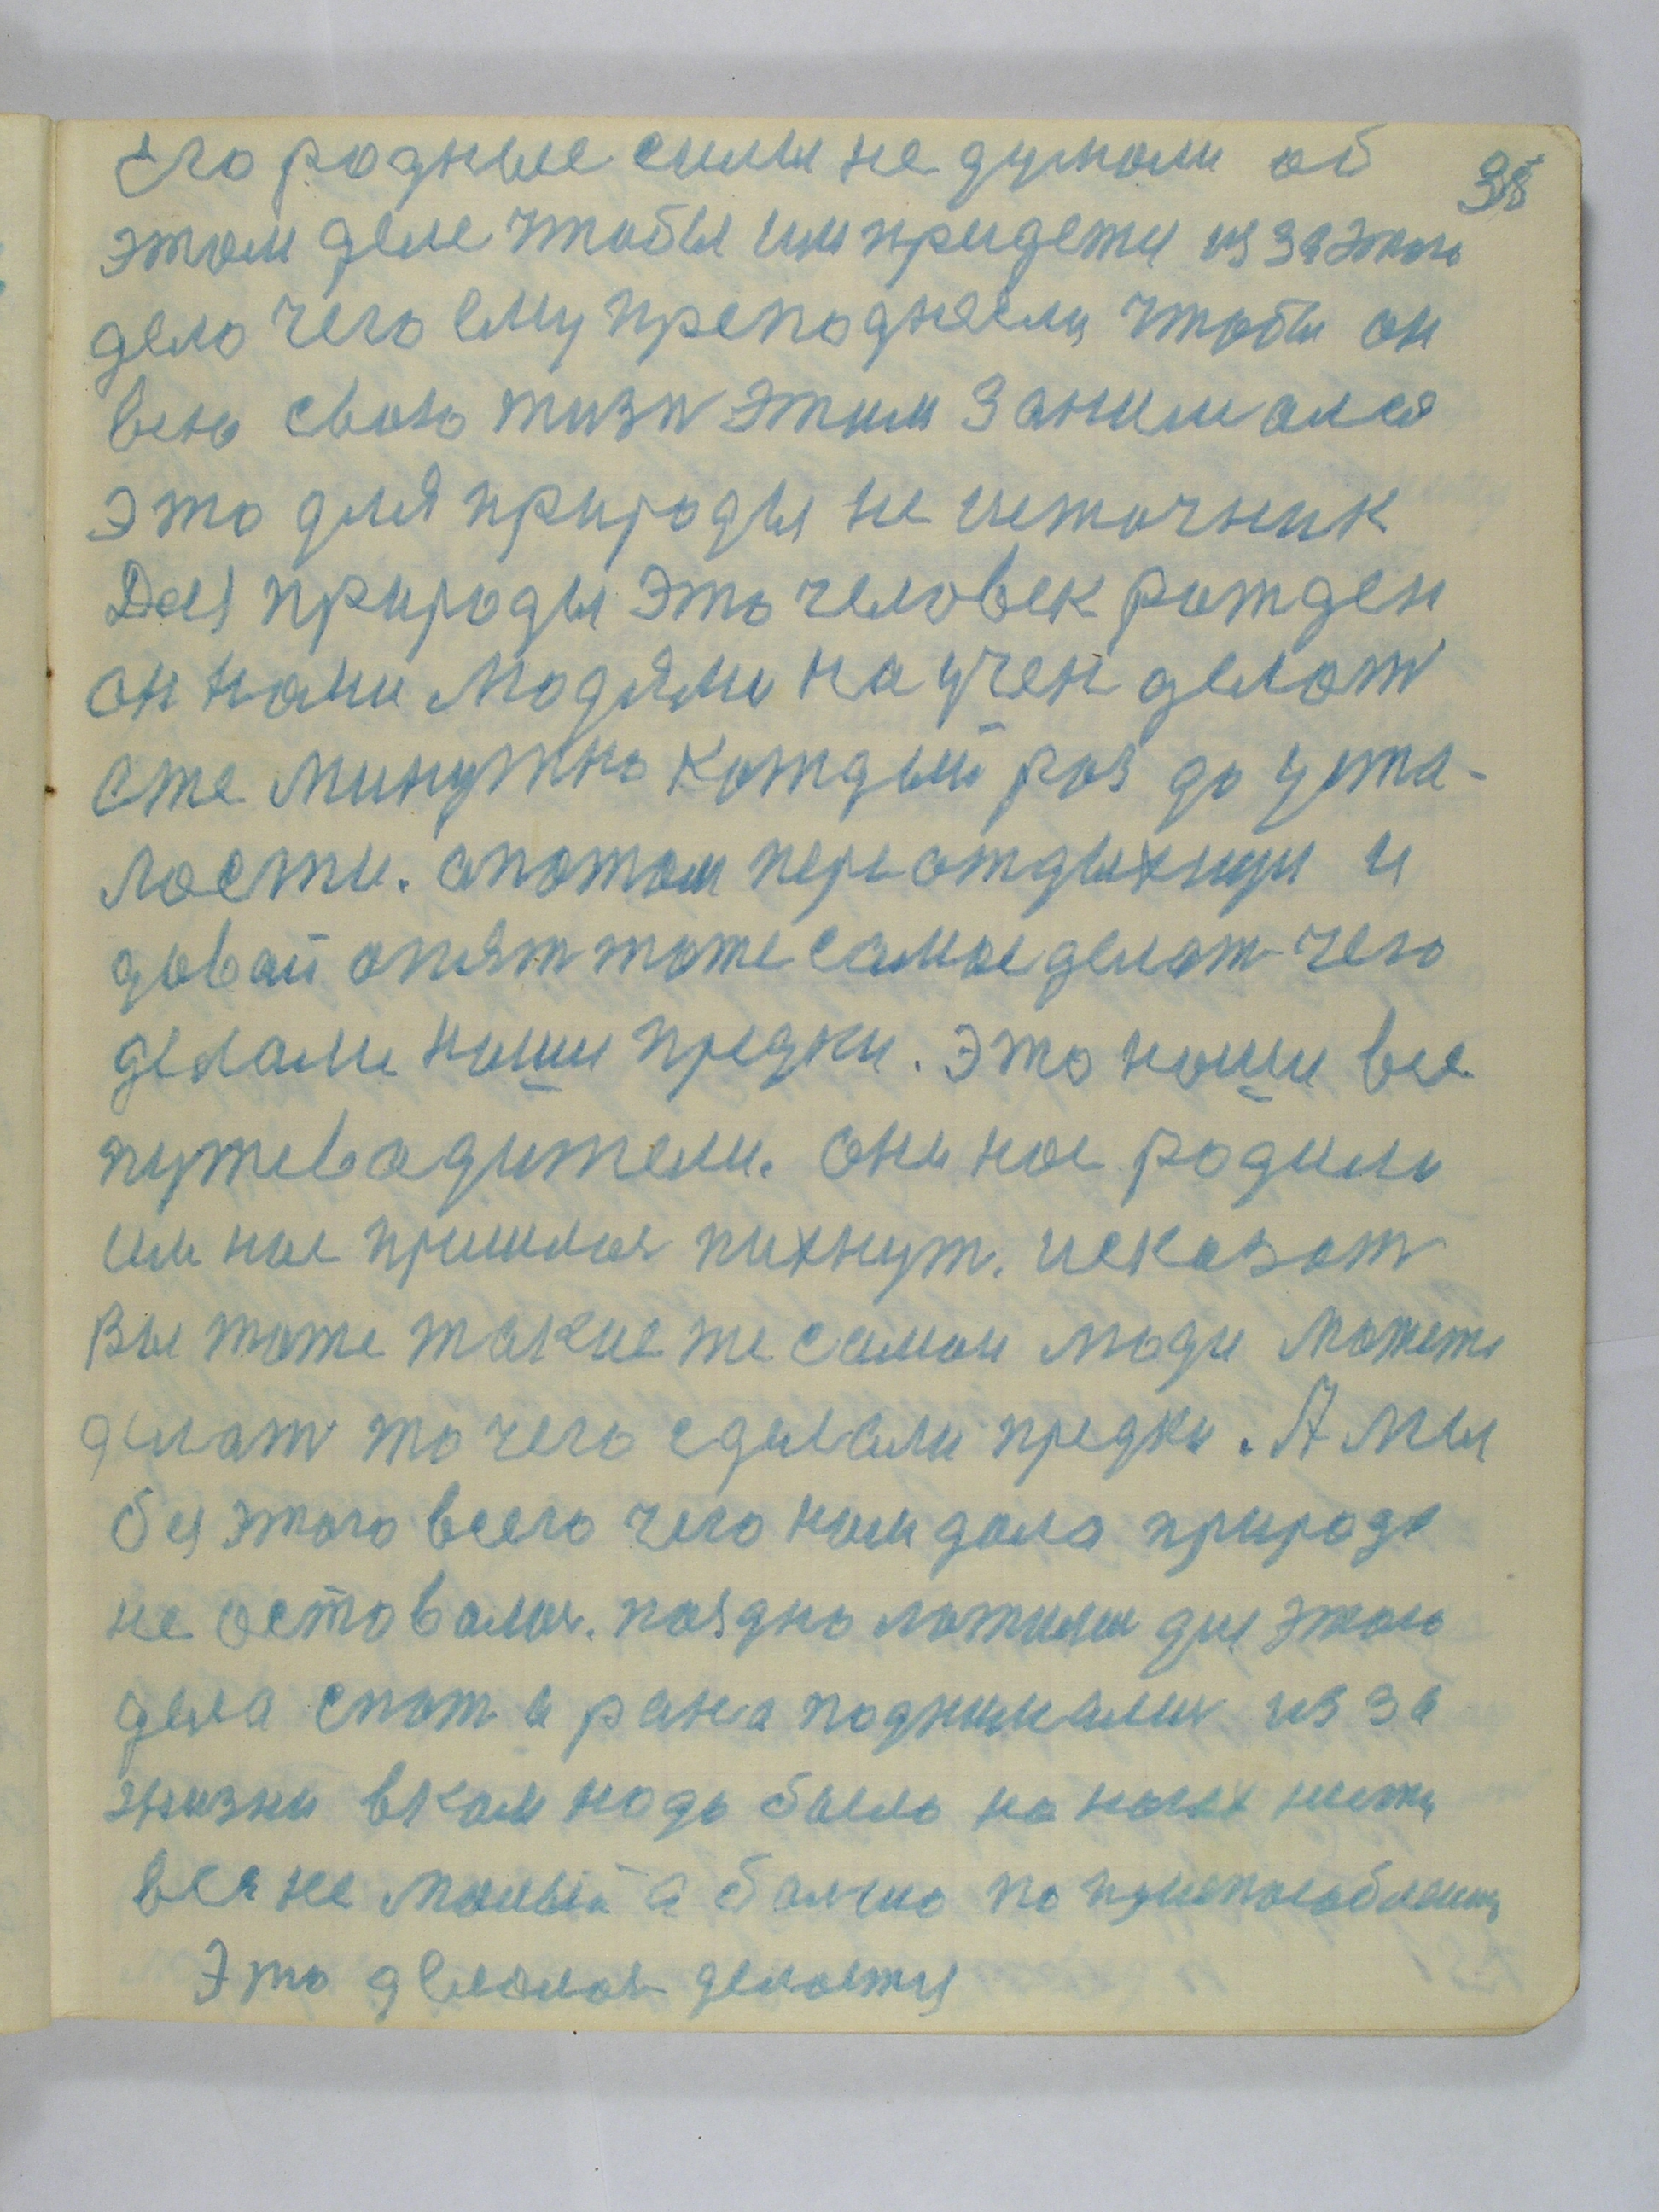 Его родные силы не думали об
38
этом деле чтобы им придети из за этого
дело чего ему преподнесли чтобы он
всю свою жизн этим занимался
это для природы не источник
Для природы это человек рожден
он нами людями научен делат
еже минутно каждый раз до уста-
лости. опотом переотдыхнул и
давай опят тоже самое делат чего
делали наши предки. это наши все
путеводители. они нас родили
им нас пришлося пихнут. исказат
Вы тоже такие же самои люди можете
делат то чего сделали предки. А мы
без этого всего чего нам дала природа
не оставалис. поздно ложилис для этого
дела спат а рана поднималис из за
жизни вком надо было на ногах
вся не малый а болшио по приспособлению
Это делалос делается